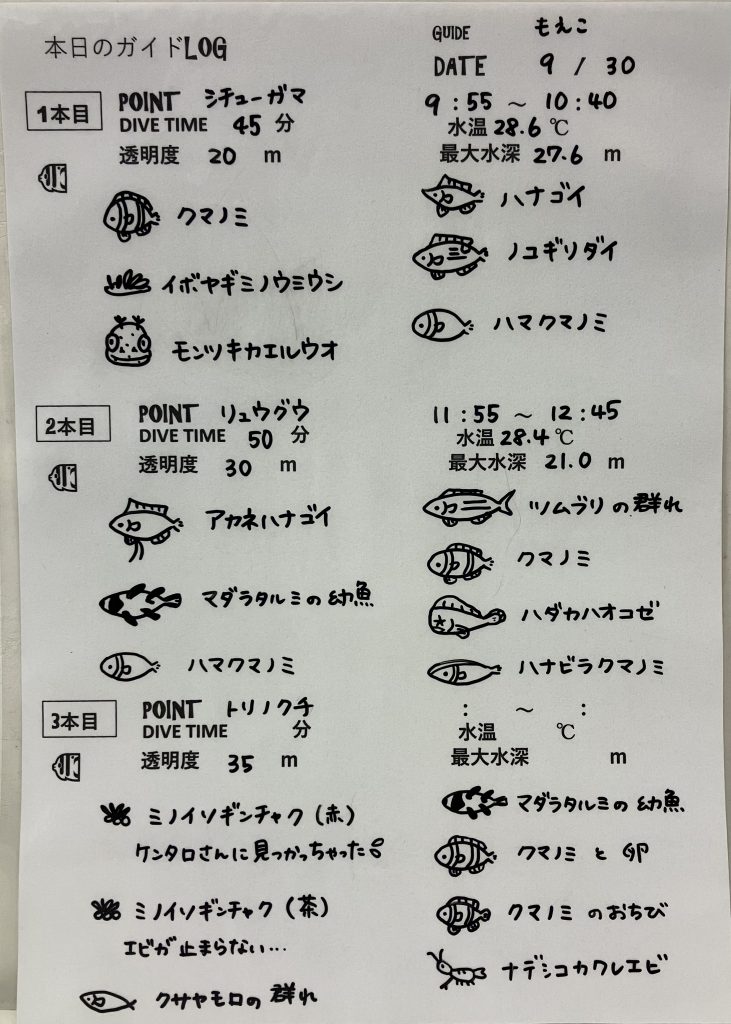 本日のガイドLOG
GUIDE もえこ
DATE 9 / 30
1本目 POINT シチューガマ 9:55 ～ 10:40
DIVE TIME 45 分 水温 28.6 ℃
透明度 20 m 最大水深 27.6 m
クマノミ
イボヤギミノウミウシ
モンツキカエルウオ
ハナゴイ
ノコギリダイ
ハマクマノミ
2本目 POINT リュウグウ 11:55 ～ 12:45
DIVE TIME 50 分 水温 28.4 ℃
透明度 30 m 最大水深 21.0 m
アカネハナゴイ
マダラタルミの幼魚
ハマクマノミ
ツムブリの群れ
クマノミ
ハダカハオコゼ
ハナビラクマノミ
3本目 POINT トリノクチ : ～ :
DIVE TIME 分 水温 ℃
透明度 35 m 最大水深 m
ミノイソギンチャク(赤)
ケンタロさんに見つかっちゃった
ミノイソギンチャク(茶)
エビが止まらない…
クサヤモロの群れ
マダラタルミの幼魚
クマノミと卵
クマノミのおちび
ナデシコカクレエビ